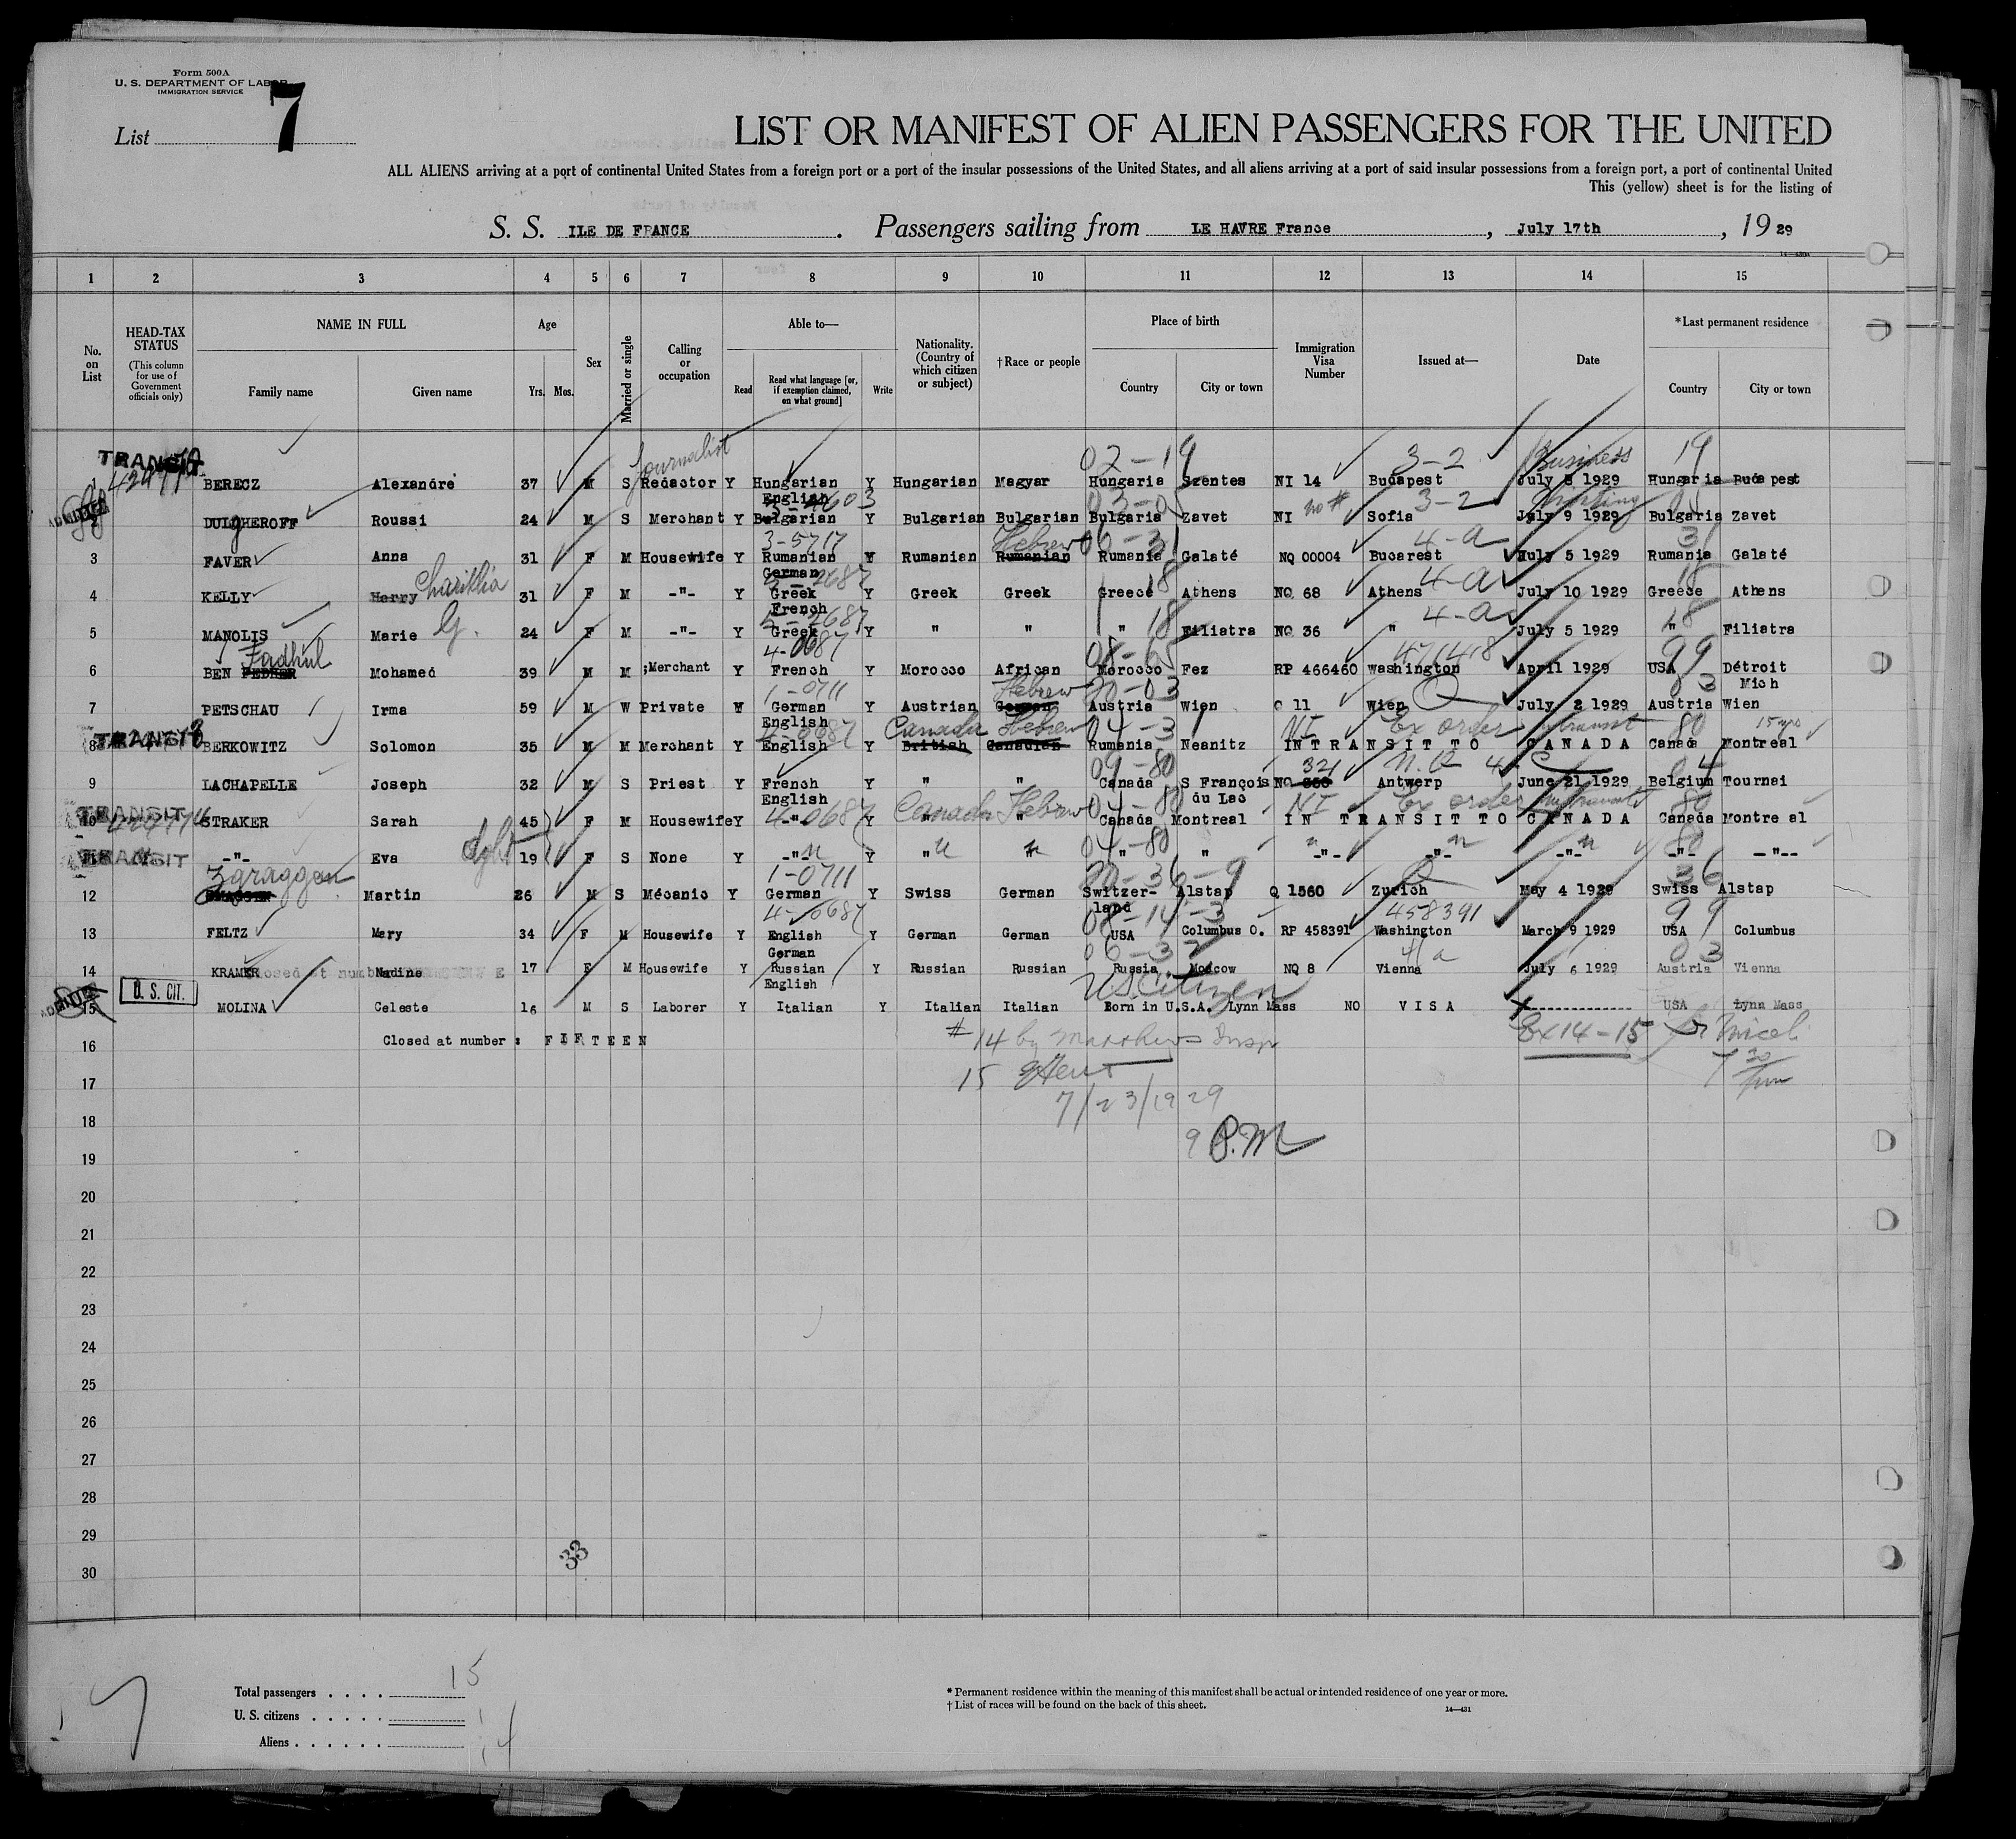 Form 500A
U. S. DEPARTMENT OF LABOR
IMMIGRATION SERVICE
List 7
LIST OR MANIFEST OF ALIEN PASSENGERS FOR THE UNITED
ALL ALIENS arriving at a port of continental United States from a foreign port or a port of the insular possessions of the United States, and all aliens arriving at a port of said insular possessions from a foreign port, a port of continental United
This (yellow) sheet is for the listing of
S. S. ILE DE FRANCE. Passengers sailing from LE HAVRE France, July 17th, 1929
14—430A
1 2 3 4 5 6 7 8 9 10 11 12 13 14 15
No. on List
HEAD-TAX STATUS (This column for use of Government officials only)
NAME IN FULL Family name Given name
Age Yrs. Mos.
Sex
Married or single
Calling or occupation
Able to— Read Read what language [or, if exemption claimed, on what ground] Write
Nationality. (Country of which citizen or subject)
†Race or people
Place of birth Country City or town
Immigration Visa Number
Issued at—
Date
*Last permanent residence Country City or town
TRANSIT Journalist 02-19 3-2 Business 19
1 BERECZ Alexandre 37 M S Redactor Y Hungarian Y Hungarian Magyar Hungaria Szentes NI 14 Budapest July 8 1929 Hungaria Budapest
English 03-05 no # 3-2 Visiting
ADMITTED 2 DULGHEROFF Roussi 24 M S Merchant Y Bulgarian Y Bulgarian Bulgarian Bulgaria Zavet NI Sofia July 9 1929 Bulgaria Zavet
3-5717 Hebrew 06-31 4-a 31
3 FAVER Anna 31 F M Housewife Y Rumanian Y Rumanian Rumanian Rumania Galaté NQ 00004 Bucarest July 5 1929 Rumania Galaté
German Chariklia 18 4-a 18
4 KELLY Harry 31 F M -"- Y Greek Y Greek Greek Greece Athens NQ 68 Athens July 10 1929 Greece Athens
French G. 18 4-a 18
5 MANOLIS Marie 24 F M -"- Y Greek Y " " " Filiatra NQ 36 " July 5 1929 " Filiatra
Fadhul 4-0687 08-65 99
6 BEN Mohamed 39 M M Merchant Y French Y Morocco African Morocco Fez RP 466460 Washington April 1929 USA Détroit
Mich
1-0711 Hebrew 20-03 Q 03
7 PETSCHAU Irma 59 M W Private Y German Y Austrian German Austria Wien Q 11 Wien July 2 1929 Austria Wien
English 4-0687 Canada Hebrew 04-31 NI Ex order intransit 80 15 yrs
TRANSIT 8 BERKOWITZ Solomon 35 M M Merchant Y English Y British Canadian Rumania Neanitz IN TRANSIT TO CANADA Canada Montreal
09-80 321 N.Q 4-C 04
9 LACHAPELLE Joseph 32 M S Priest Y French Y " " Canada S François du Lac NQ Antwerp June 21 1929 Belgium Tournai
English
TRANSIT 4-0687 Canada Hebrew 04-80 NI Ex order intransit 80
10 STRAKER Sarah 45 F M Housewife Y -"- Y " " Canada Montreal IN TRANSIT TO CANADA Canada Montreal
dght 04-80 80
TRANSIT 11 -"- Eva 19 F S None Y -"- Y " " " " -"- -"- -"- -"- -"-
Zgraggen 1-0711 20-36-9 Q 36
12 Martin 26 M S Mécanic Y German Y Swiss German Switzerland Alstap Q 1560 Zurich May 4 1929 Swiss Alstap
4-0687 08-14-3 458391 99
13 FELTZ Mary 34 F M Housewife Y English Y German German USA Columbus O. RP 458391 Washington March 9 1929 USA Columbus
German 06-32 4a 03
14 KRAMER Nadine 17 F M Housewife Y Russian Y Russian Russian Russia Moscow NQ 8 Vienna July 6 1929 Austria Vienna
English US Citizen
ADMITTED U. S. CIT. 15 MOLINA Celeste 16 M S Laborer Y Italian Y Italian Italian Born in U.S.A. Lynn Mass NO VISA USA Lynn Mass
16 Closed at number : FIFTEEN #14 by Matthews Insp Ex 14-15
17 15
7/23/1929
18
9 P.M
19
20
21
22
23
24
25
26
27
28
29
30
33
Total passengers . . . . 15
U. S. citizens . . . . . 1
Aliens . . . . . . 14
7
* Permanent residence within the meaning of this manifest shall be actual or intended residence of one year or more.
† List of races will be found on the back of this sheet.
14—431